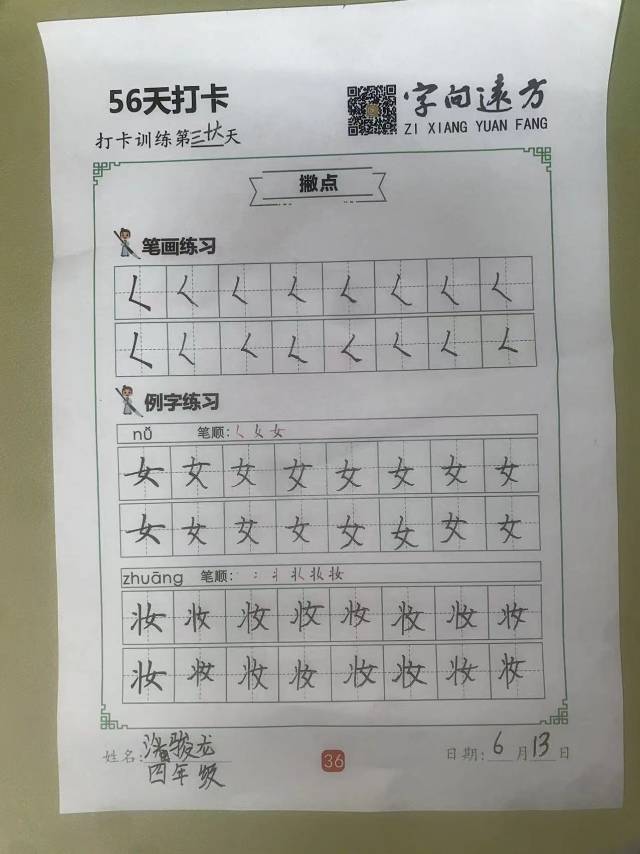 56天打卡
字向遠方
ZI XIANG YUAN FANG
打卡训练第三十六天
撇点
笔画练习
𡿨 𡿨 𡿨 𡿨 𡿨 𡿨 𡿨 𡿨
𡿨 𡿨 𡿨 𡿨 𡿨 𡿨 𡿨 𡿨
例字练习
nǚ 笔顺: 𡿨 女 女
女 女 女 女 女 女 女 女
女 女 女 女 女 女 女 女
zhuāng 笔顺:
妆 妆 妆 妆 妆 妆 妆 妆
妆 妆 妆 妆 妆 妆 妆 妆
姓名: 骏龙
四年级
36
日期: 6 月 13 日